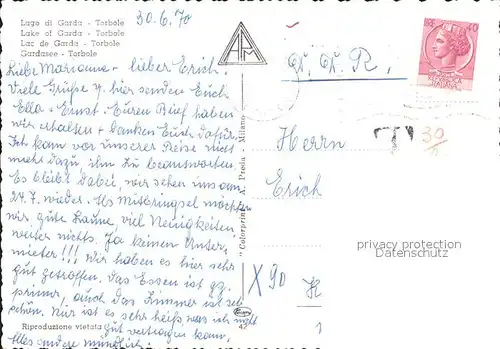 Lago di Garda - Torbole
Lake of Garda - Torbole
Lac de Garda - Torbole
Gardasee - Torbole
30.6.70
Liebe Marianne - lieber Erich!
Viele Grüße v. hier senden Euch
Ella + Ernst. Euren Brief haben
wir erhalten + danken Euch dafür.
Ich kam vor unserer Reise nicht
mehr dazu, ihn zu beantworten.
Es bleibt dabei, wir sehen uns am
24.7. wieder. Als Mitbringsel möchten
wir gute Laune, viel Neuigkeiten,
weiter nichts. Ja keinen Unter-
mieter!!! Wir haben es hier sehr
gut getroffen. Das Essen ist
prima, auch das Zimmer ist sehr
schön. Nur ist es sehr heiß, was ich nicht
gut vertragen kann.
Alles andere mündlich
Riproduzione vietata
"Colorprint" A. Preda - Milano
45
AR
40
ITALIANA
T
30
Herrn
Erich
X 90
privacy protection
Datenschutz